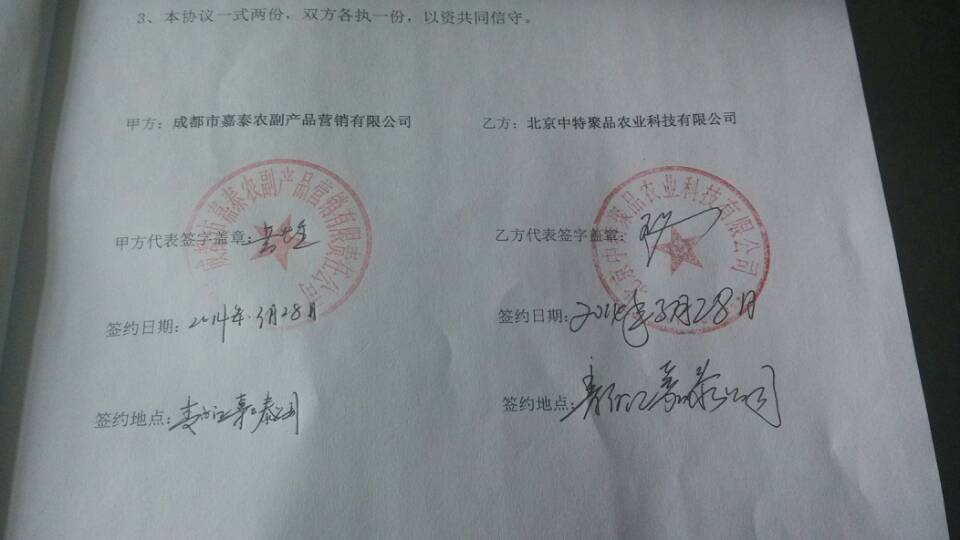 3、本协议一式两份，双方各执一份，以资共同信守。
甲方：成都市嘉泰农副产品营销有限公司
乙方：北京中特聚品农业科技有限公司
成都市嘉泰农副产品营销有限责任公司
北京中特聚品农业科技有限公司
甲方代表签字盖章：
乙方代表签字盖章：
签约日期：2014年3月28日
签约日期：2014年3月28日
签约地点：嘉泰公司
签约地点：嘉泰公司